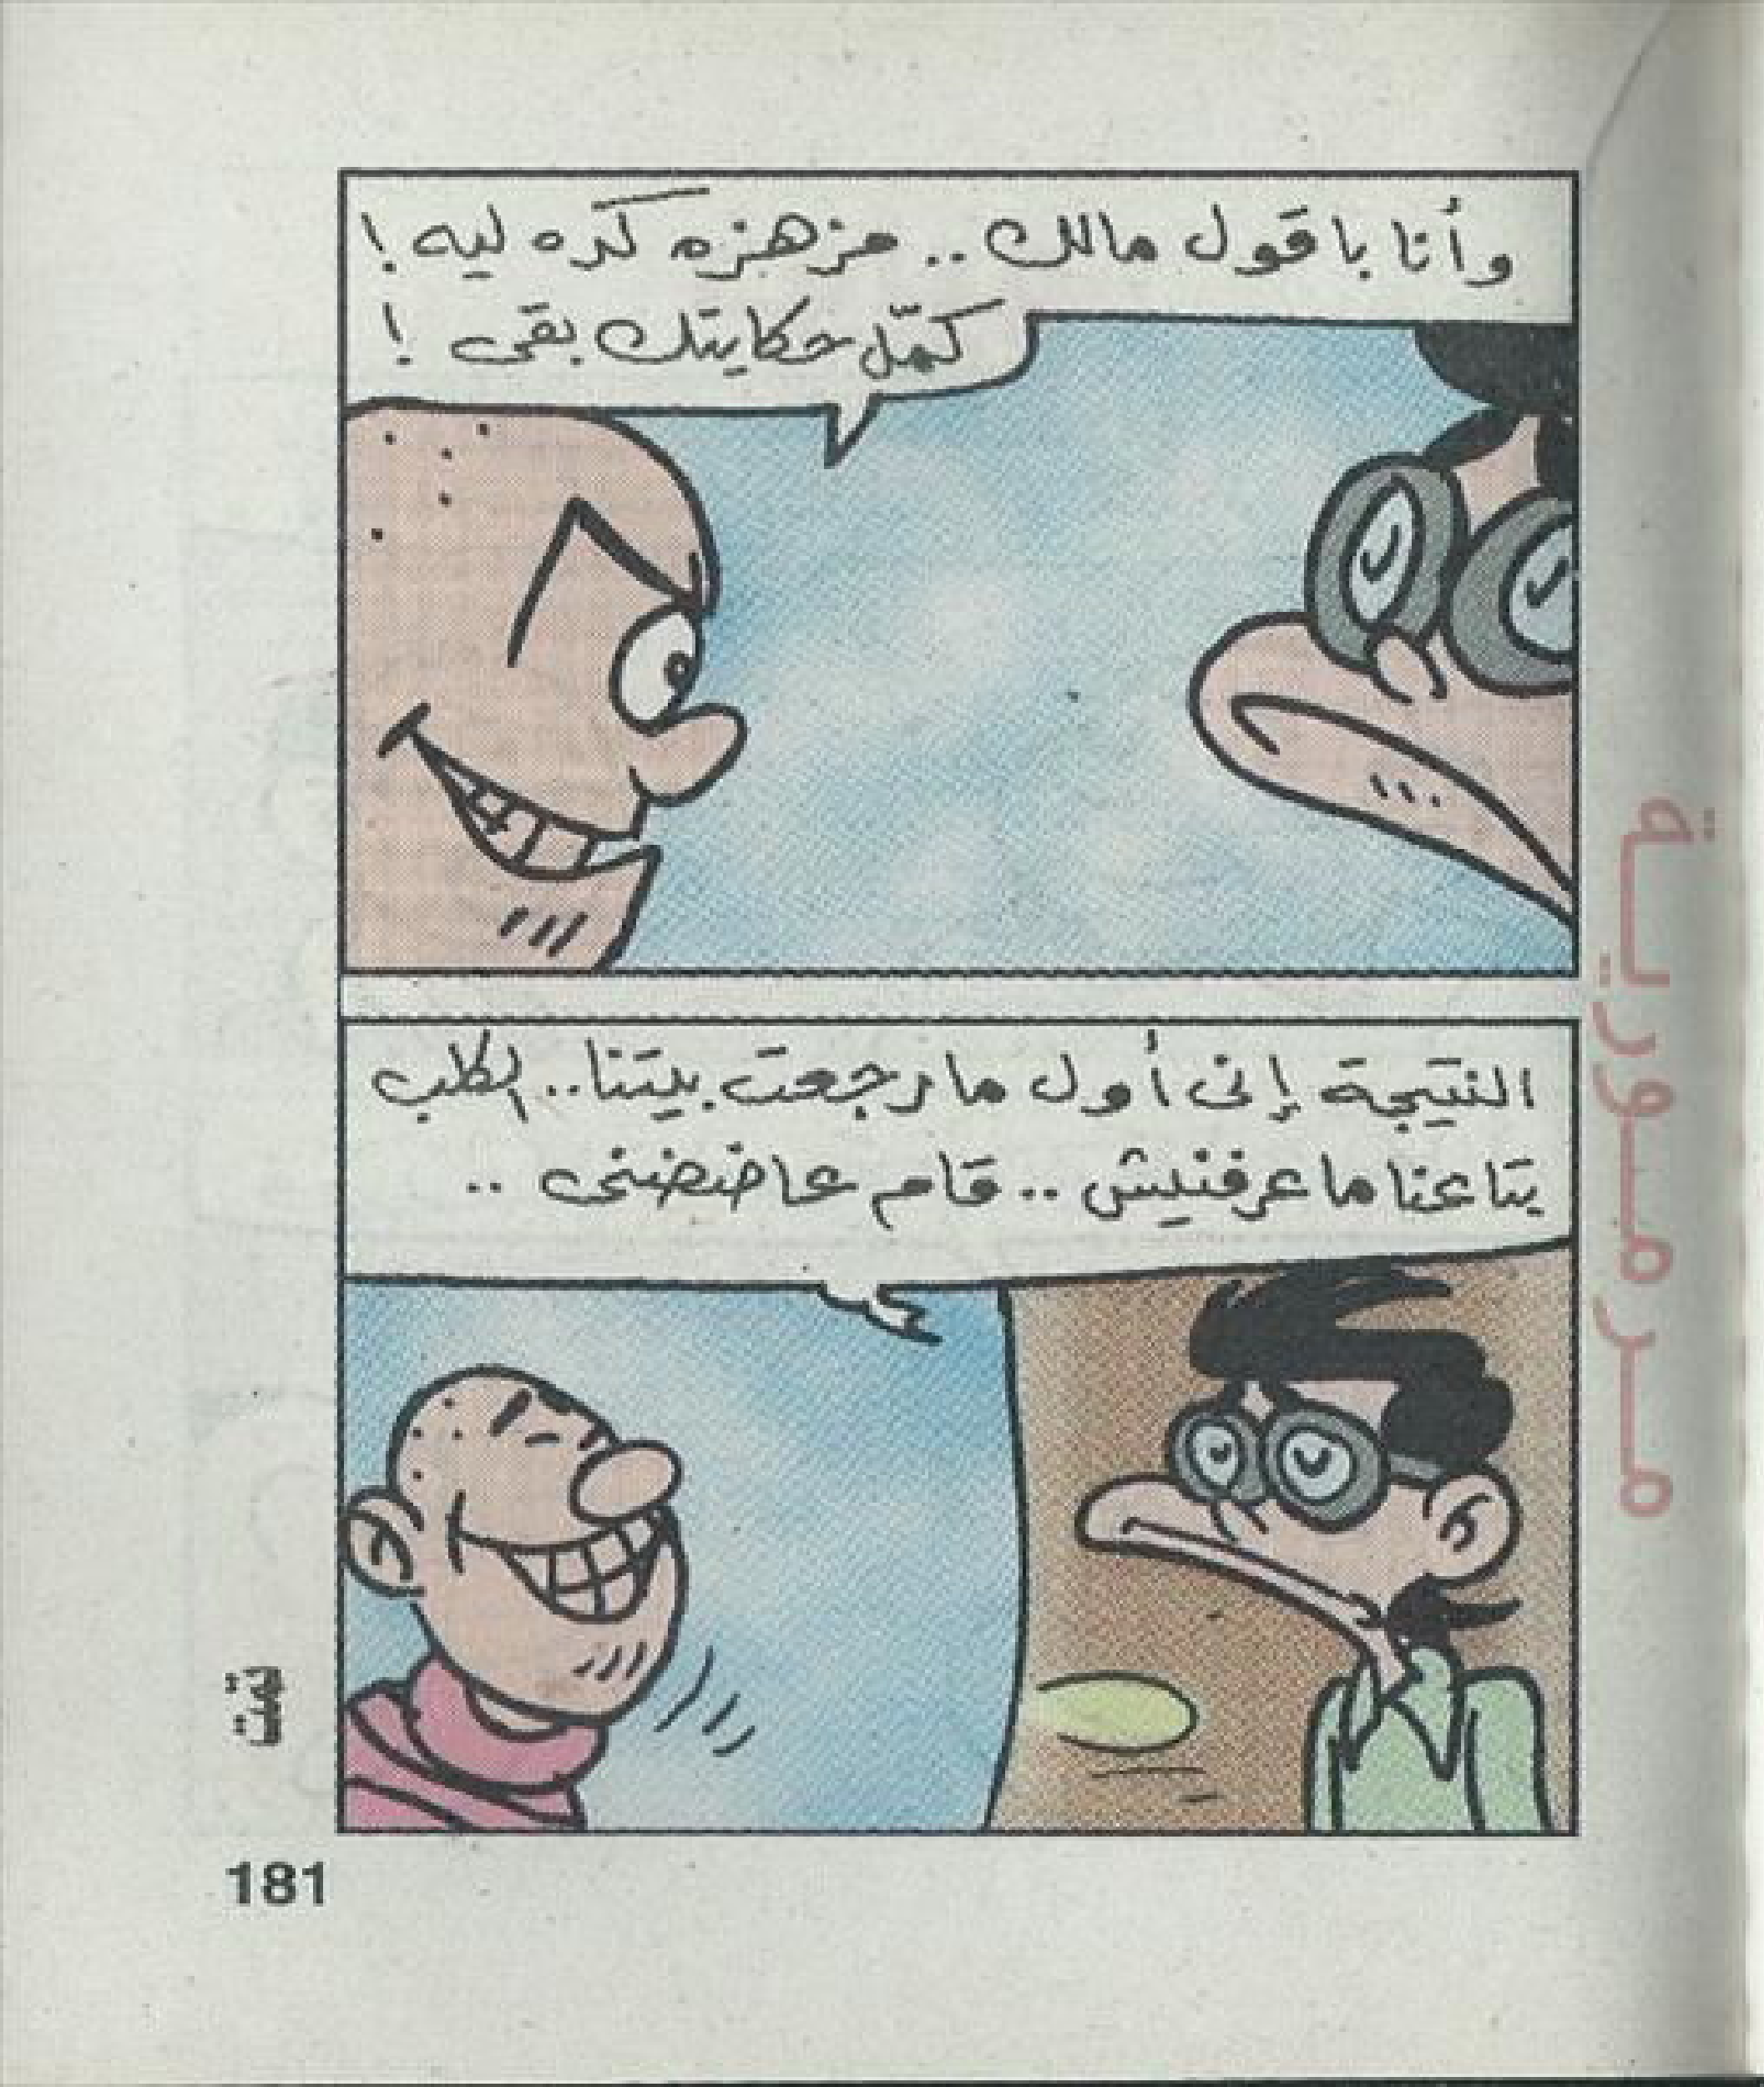 وأنا باقول مالك .. مزهزه كده ليه !
كمّل حكايتك بقى !
النتيجة إنى أول ما رجعت بيتنا .. الكلب
بتاعنا ما عرفنيش .. قام عاضضنى ..
تمت
181
مرمورية